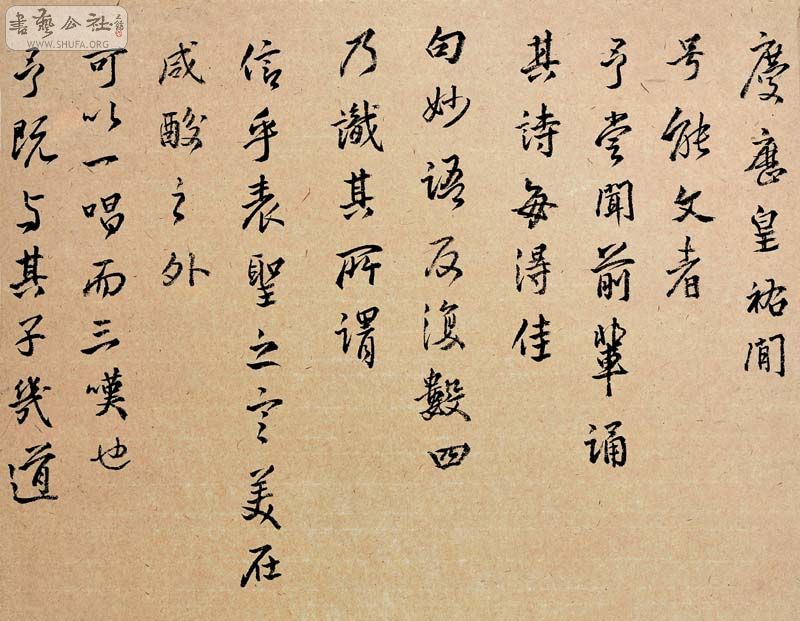 書藝公社
WWW.SHUFA.ORG
慶曆皇祐間
号能文者
予嘗聞前輩誦
其詩每得佳
句妙語反復數四
乃識其所謂
信乎表聖之言美在
咸酸之外
可以一唱而三嘆也
予既与其子幾道